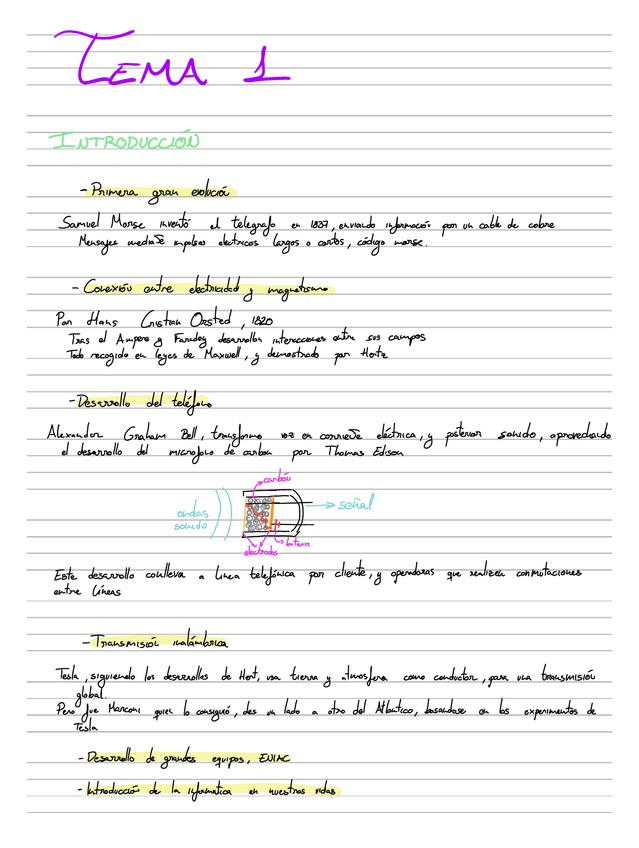 TEMA 1
INTRODUCCIÓN
- Primera gran evolució
Samuel Morse inventó el telegrafo en 1837, enviando información por un cable de cobre
Mensajes mediate impulsos electricos largos o cortos, código morse.
- Conexión entre electricidad y magnetismo
Por Hans Cristian Orsted, 1820
Tras el Ampere y Faraday desarrollan interacciones entre sus campos
Todo recogido en leyes de Maxwell, y demostrado por Hertz
- Desarrollo del teléfono
Alexander Graham Bell, transformo voz en corriete eléctrica, y posterior sonido, aprovechando
el desarrollo del microfono de carbon por Thomas Edison
carbón
ondas
sonido
señal
batería
electrodos
Este desarrollo conlleva a linea telefónica por cliente, y operadoras que realizen conmutaciones
entre líneas
- Transmisió inalámbrica
Tesla, siguiendo los desarrolles de Hert, usa tierra y atmosfera como conductor, para una transmisión
global.
Pero fue Marconi quien lo consiguió, des un lado a otro del Atlantico, basandose en los experimentos de
Tesla
- Desarrollo de grandes equipos, ENIAC
- Introducció de la informatica en nuestras vidas